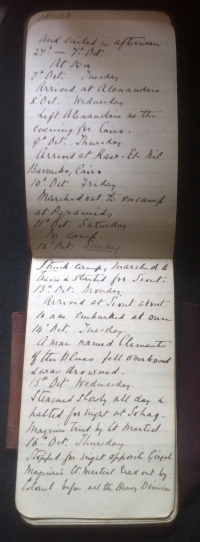 And sailed in afternoon
27th — 7th Oct.
At Sea
7th Oct. Tuesday
Arrived at Alexandria
8 Oct. Wednesday
Left Alexandria in the
evening for Cairo.
9th Oct. Thursday
Arrived at Kasr-El-Nil
Barracks, Cairo
10th Oct. Friday
Marched out to encamp
at Pyramids
11th Oct. Saturday
In camp
12th Oct. Sunday
Struck camp, marched to
and started for Siout.
13th Oct. Monday
Arrived at Siout about
10 am embarked at once
14th Oct. Tuesday
A man named Clements
of the Blues fell overboard
& was drowned.
15th Oct. Wednesday
Steamed slowly all day &
halted for night at Sohag.
Maguire tried by Ct Martial
16th Oct. Thursday
Stopped for night opposite
Maguire's Ct Martial read out by
Colonel before all the Heavy Division